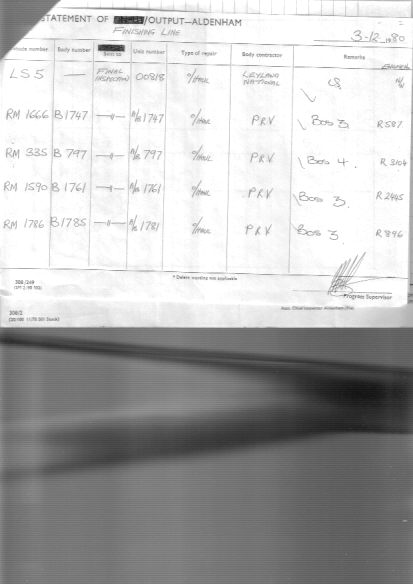 STATEMENT OF /OUTPUT—ALDENHAM
FINISHING LINE
3-12-1980
number Body number Sent to Unit number Type of repair Body contractor Remarks
LS 5 — FINAL INSPECTION 00818 O/HAUL LEYLAND NATIONAL
RM 1666 B1747 —〃— N/S 1747 O/HAUL P R V Box 3. R587
RM 335 B 797 —〃— N/S 797 O/HAUL P R V Box 4. R3104
RM 1590 B1761 —〃— N/S 1761 O/HAUL P R V Box 3. R2445
RM 1786 B1785 —〃— N/S 1781 O/HAUL P R V Box 3. R896
* Delete wording not applicable
308/249
Program Supervisor
308/2